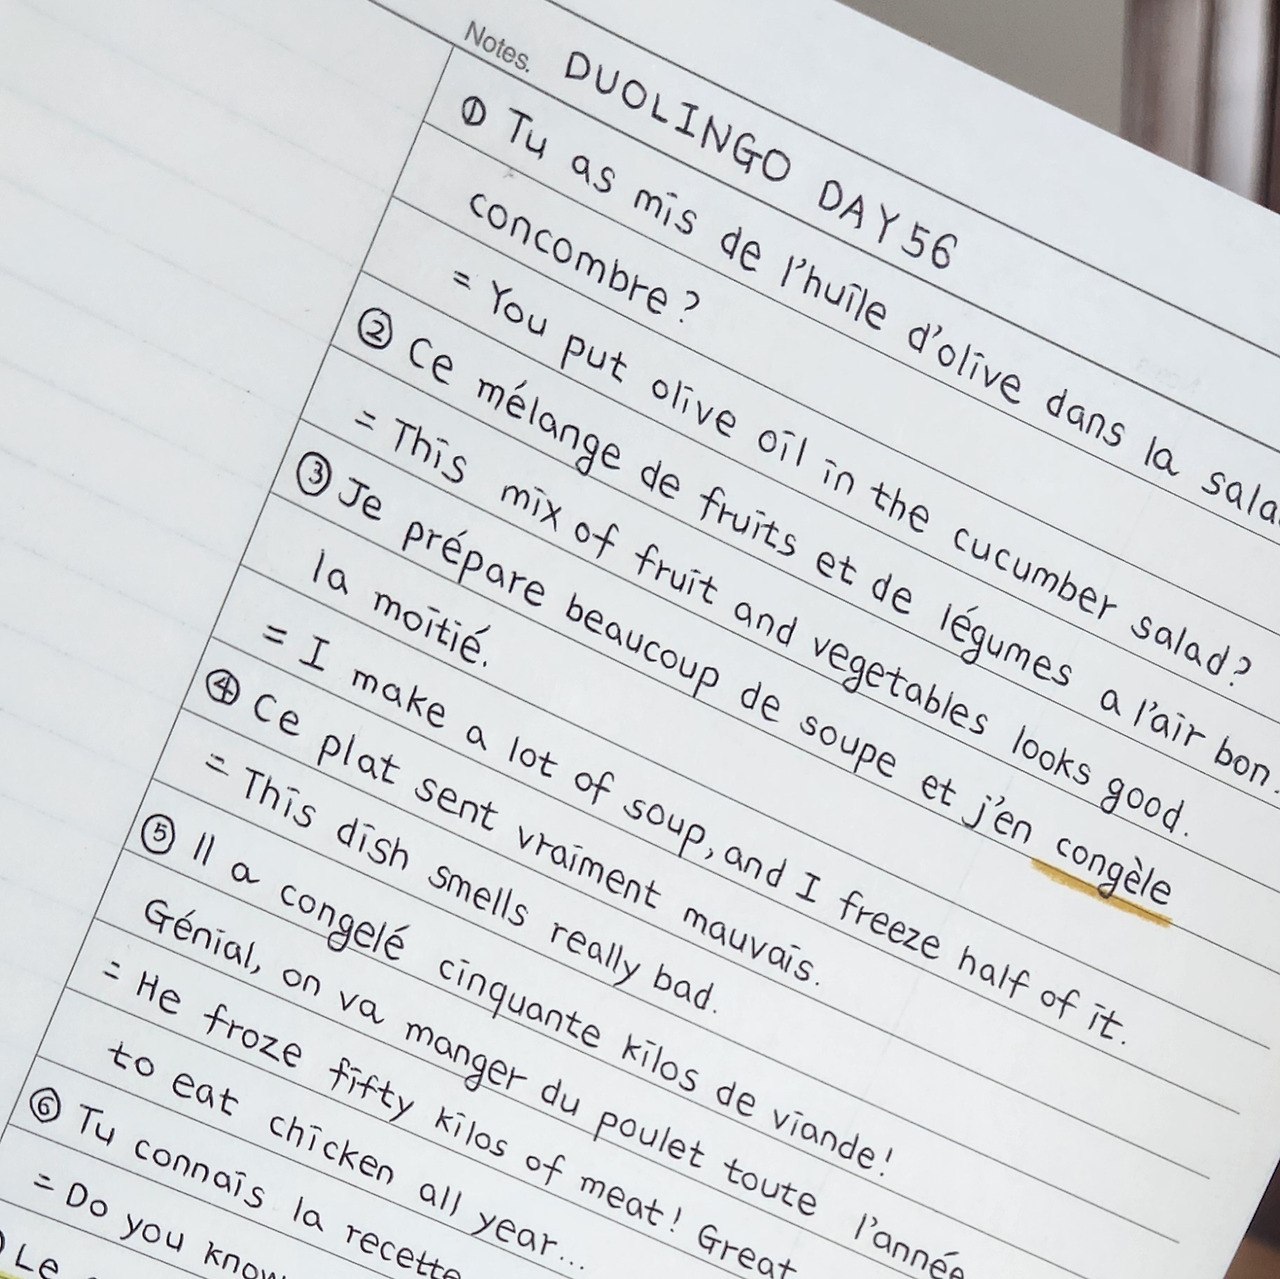 Notes. DUOLINGO DAY 56
① Tu as mis de l'huile d'olive dans la
concombre ?
= You put olive oil in the cucumber salad?
② Ce mélange de fruits et de légumes a l'air bon.
= This mix of fruit and vegetables looks good.
③ Je prépare beaucoup de soupe et j'en congèle
la moitié.
= I make a lot of soup, and I freeze half of it.
④ Ce plat sent vraiment mauvais.
= This dish smells really bad.
⑤ Il a congelé cinquante kilos de viande!
Génial, on va manger du poulet toute l'année
= He froze fifty kilos of meat! Great
to eat chicken all year...
⑥ Tu connais la recette
= Do you know
Le